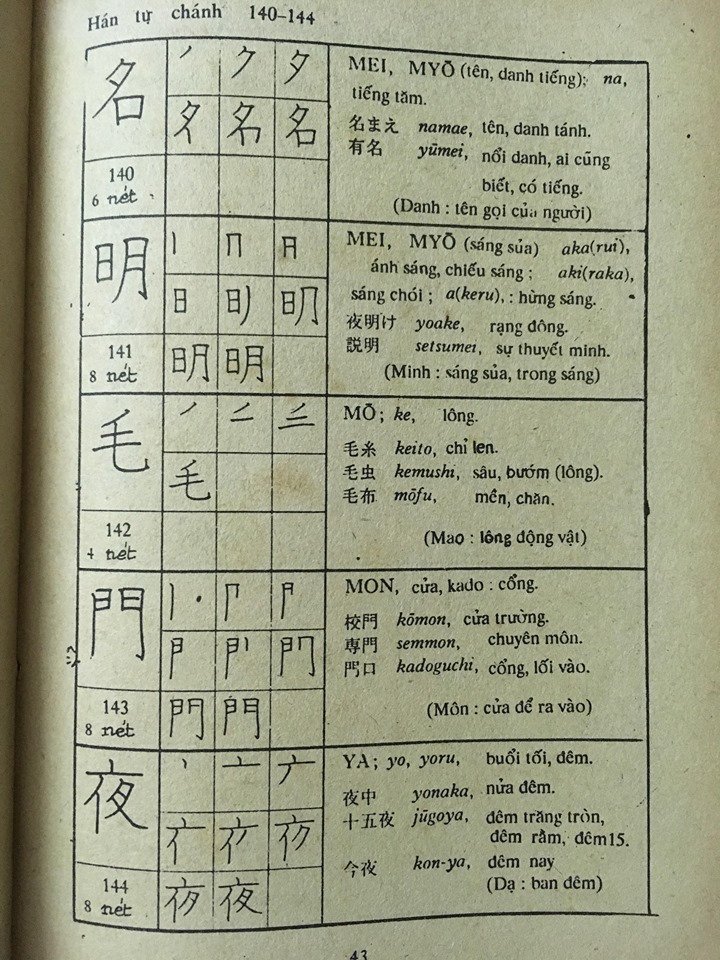 Hán tự chánh 140-144
名
140
6 nét
MEI, MYŌ (tên, danh tiếng); na,
tiếng tăm.
名まえ namae, tên, danh tánh.
有名 yūmei, nổi danh, ai cũng
biết, có tiếng.
(Danh : tên gọi của người)
名
明
141
8 nét
丨 冂 日
日
明
明 明
MEI, MYŌ (sáng sủa) aka(rui),
ánh sáng, chiếu sáng ; aki(raka),
sáng chói ; a(keru), : hừng sáng.
夜明け yoake, rạng đông.
説明 setsumei, sự thuyết minh.
(Minh : sáng sủa, trong sáng)
毛
142
4 nét
毛
MŌ ; ke, lông.
毛糸 keito, chỉ len.
毛虫 kemushi, sâu, bướm (lông).
毛布 mōfu, mền, chăn.
(Mao : lông động vật)
門
143
8 nét
門 門
MON, cửa, kado : cổng.
校門 kōmon, cửa trường.
専門 semmon, chuyên môn.
門口 kadoguchi, cổng, lối vào.
(Môn : cửa để ra vào)
夜
144
8 nét
夜
YA ; yo, yoru, buổi tối, đêm.
夜中 yonaka, nửa đêm.
十五夜 jūgoya, đêm trăng tròn,
đêm rằm, đêm15.
今夜 kon-ya, đêm nay
(Dạ : ban đêm)
43